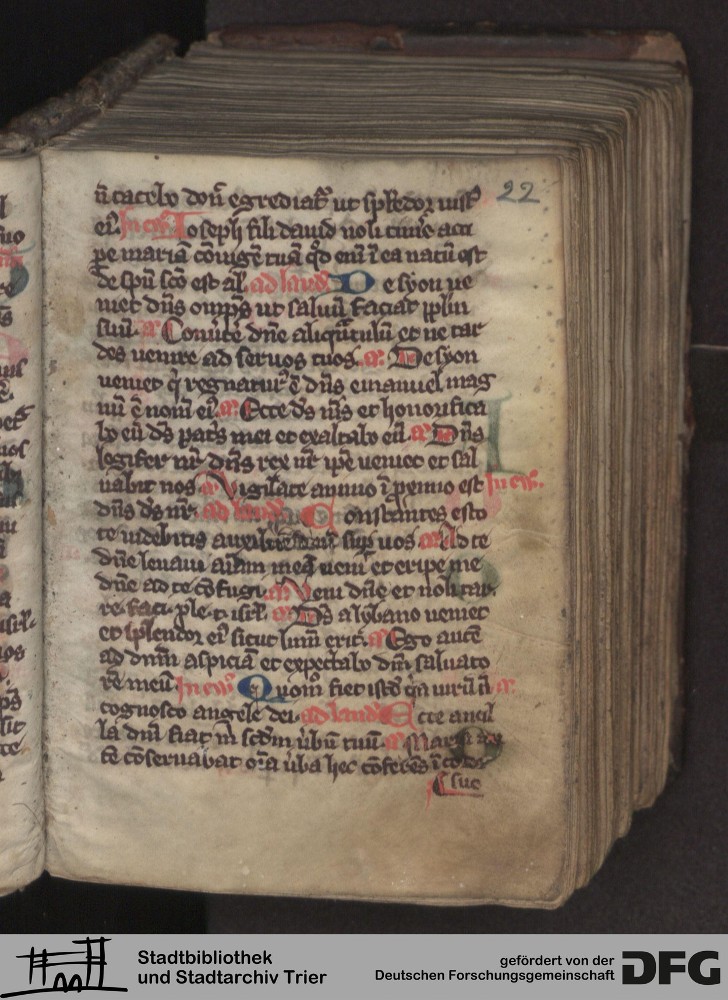 22
n̄ tacebo don̄ egrediat᷑ ut splēdor iust᷒
ei᷒. In ev᷒ Ioseph fili dauid noli time᷑ acci
pe mariā cōiugē tuā qd̄ eni᷑ ī ea natū est
de spū scō est al᷑. ad laud᷒ De syon ue
niet dn̄s omīps ut saluū faciat pplm
suū. a᷒ Conu᷑te᷑ dn̄e aliquātulū et ne tar
des uenire ad seruos tuos. a᷒. De syon
ueniet q̇ regnatur᷒ ē dn̄s emanuel mag
nū ē nom̄ ei᷒. a᷒. Ecce ds̄ ms̄ et honorifica
bo eū ds̄ pat᷑s mei et exaltabo eū. a᷒ Dn̄s
legifer nr̄ dn̄s rex nr̄ ip̄e ueniet et sal
uabit nos a᷒ Vigilate animo ī p̄ximo est In ev᷒.
dn̄s ds̄ nr̄. ad laud᷒ Constantes esto
te uidebitis auxiliū dn̄i sup̄ uos a᷒ Ad te
dn̄e leuaui aīam meā ueni et eripe me
dn̄e ad te cōfugi. a᷒ Veni dn̄e et noli tar.
re. faci. ple. t. isrl̄. a᷒ Ds̄ a lybano ueniet
et splendor ei᷒ sicut lum̄ erit. a᷒ Ego autē
ad dn̄m aspiciā et expectabo dm̄ saluato
rē meū In ev᷒ Quom̄ fiet istd̄ q̄a uirū n̄ a᷒.
cognosco angele dei. ad laud᷒ Ecce ancil
la dn̄i fiat m̄ scd̄m u᷑bū tuū. a᷒ Maria au
tē cōseruabat oīa u᷑ba hec cōferēs ī corde
suo
Stadtbibliothek
und Stadtarchiv Trier
gefördert von der
Deutschen Forschungsgemeinschaft
DFG